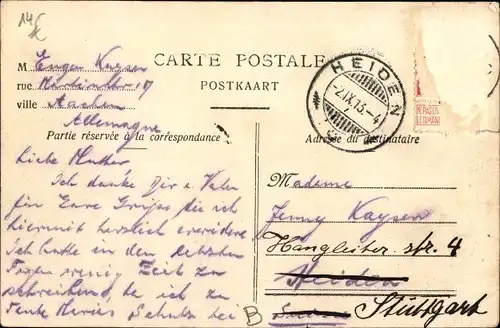 14€
CARTE POSTALE
POSTKAART
M Eugen Kayser
rue 17
ville Aachen
Allemagne
Partie réservée à la correspondance
Adresse du destinataire
HEIDEN
-2.IX.13.-4
Liebe Mutter
Ich danke Dir u Vater
für Eure Grüsse die ich
hiermit herzlich erwidere
Ich hatte in den letzten
Tagen wenig Zeit zu
schreiben, da ich zu
Madame
Jenny Kayser
Hangleiter str. 4
Heiden
Stuttgart
B